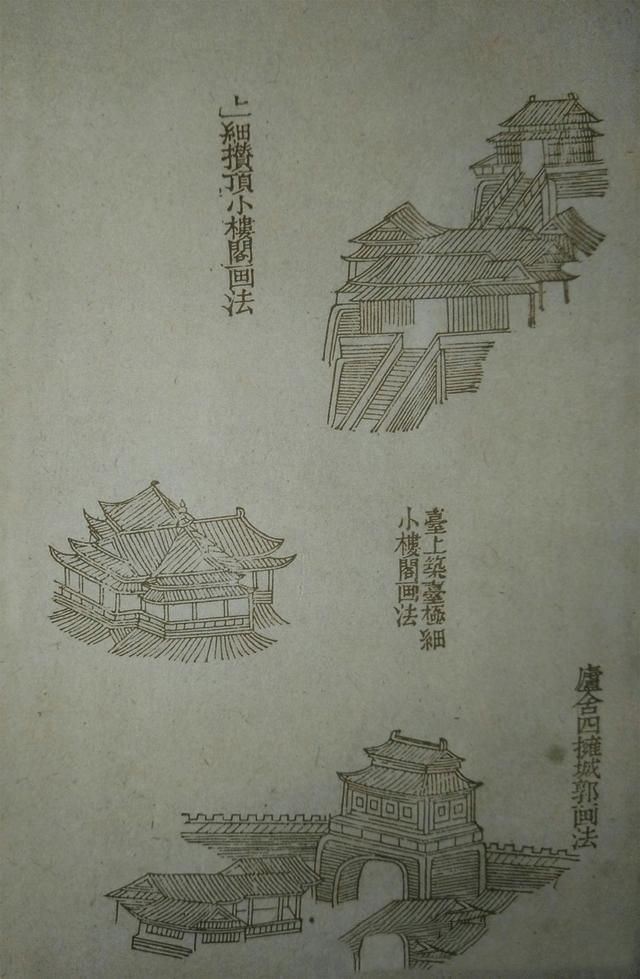 上細攢頂小樓閣画法
臺上築臺極細
小樓閣画法
廬舍四擁城郭画法